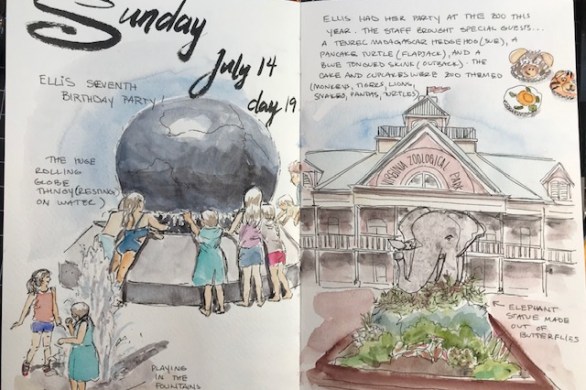 Sunday
July 14
day 19
ELLIS SEVENTH
BIRTHDAY PARTY!
THE HUGE
ROLLING
GLOBE
THINGY (RESTING
ON WATER)
PLAYING
IN THE
FOUNTAINS
ELLIS HAD HER PARTY AT THE ZOO THIS
YEAR. THE STAFF BROUGHT SPECIAL GUESTS...
A TENREL MADAGASCAR HEDGEHOG (SUE), A
PANCAKE TURTLE (FLAPJACK), AND A
BLUE TONGUED SKUNK (OUTBACK). THE
CAKE AND CUPCAKES WERE ZOO THEMED
(MONKEYS, TIGERS, LIONS,
SNAKES, PANDAS, TURTLES).
VIRGINIA ZOOLOGICAL PARK
ELEPHANT
STATUE MADE
OUT OF
BUTTERFLIES